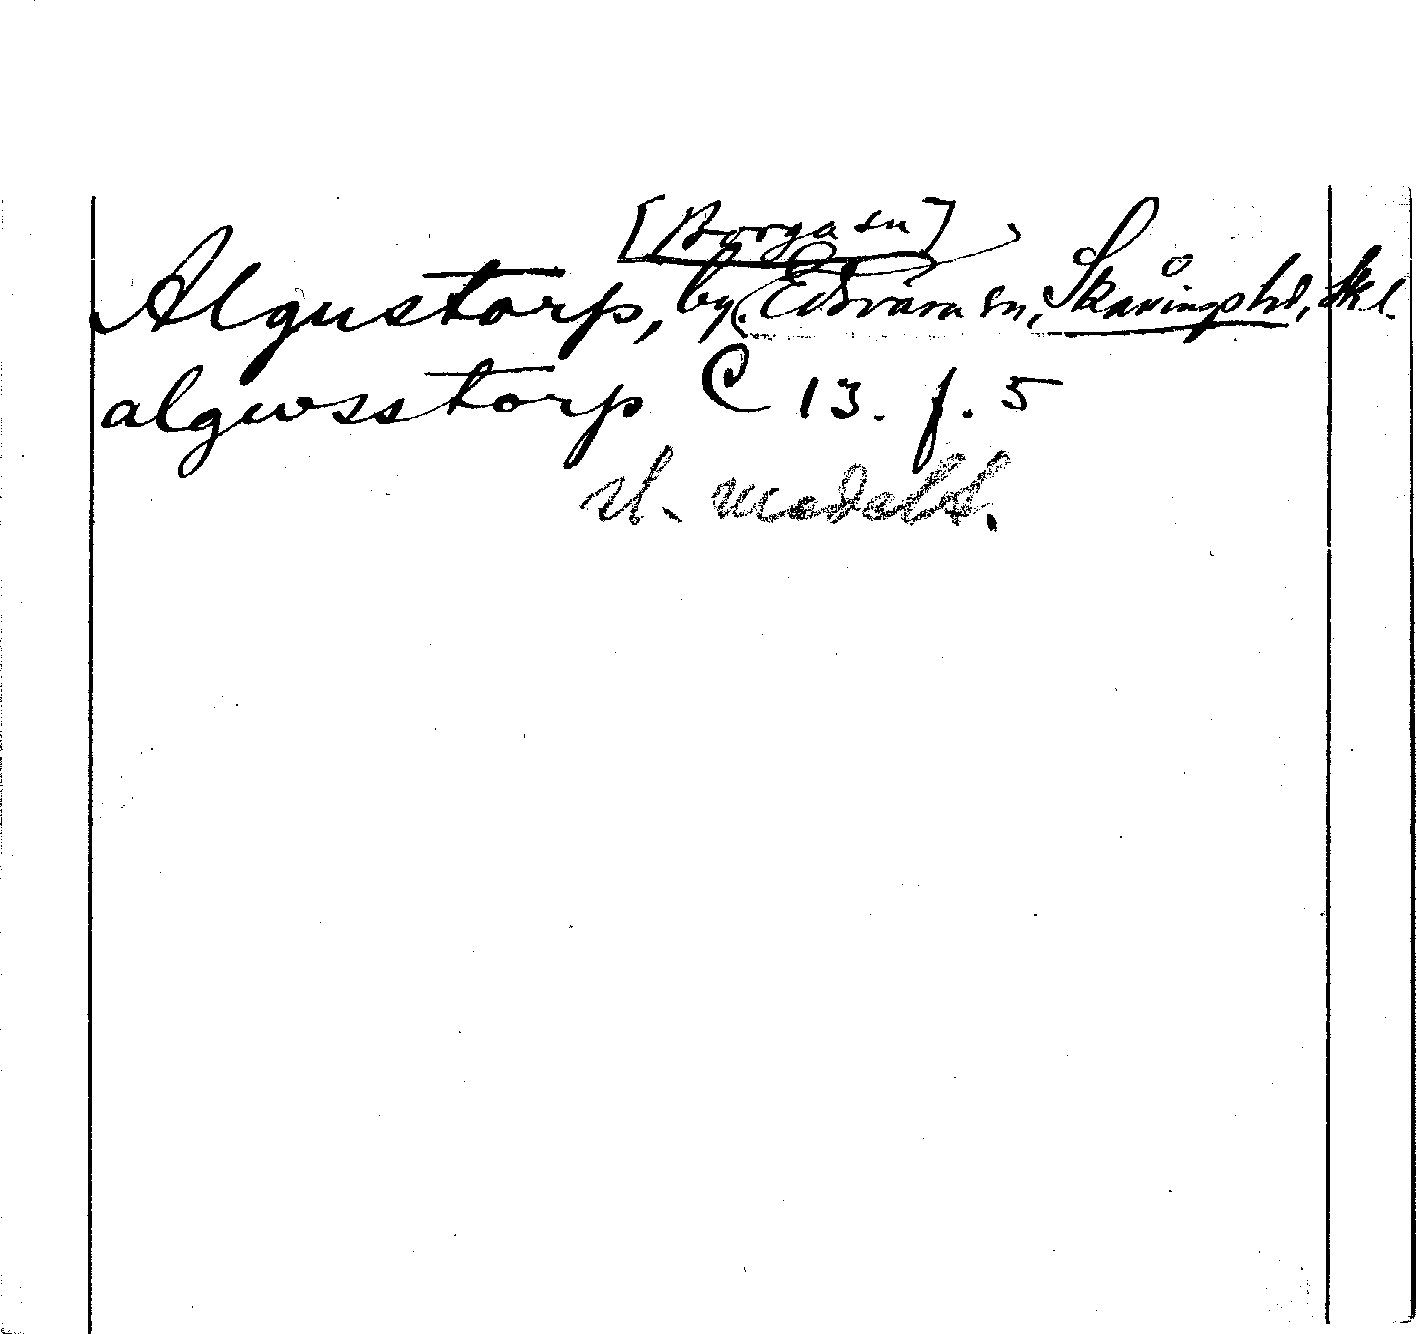 [Borga sn]
Algustorp, by, Edsvära sn, Skånings hd, Skl.
algwsstorp C 13. f. 5
sl. medelt.